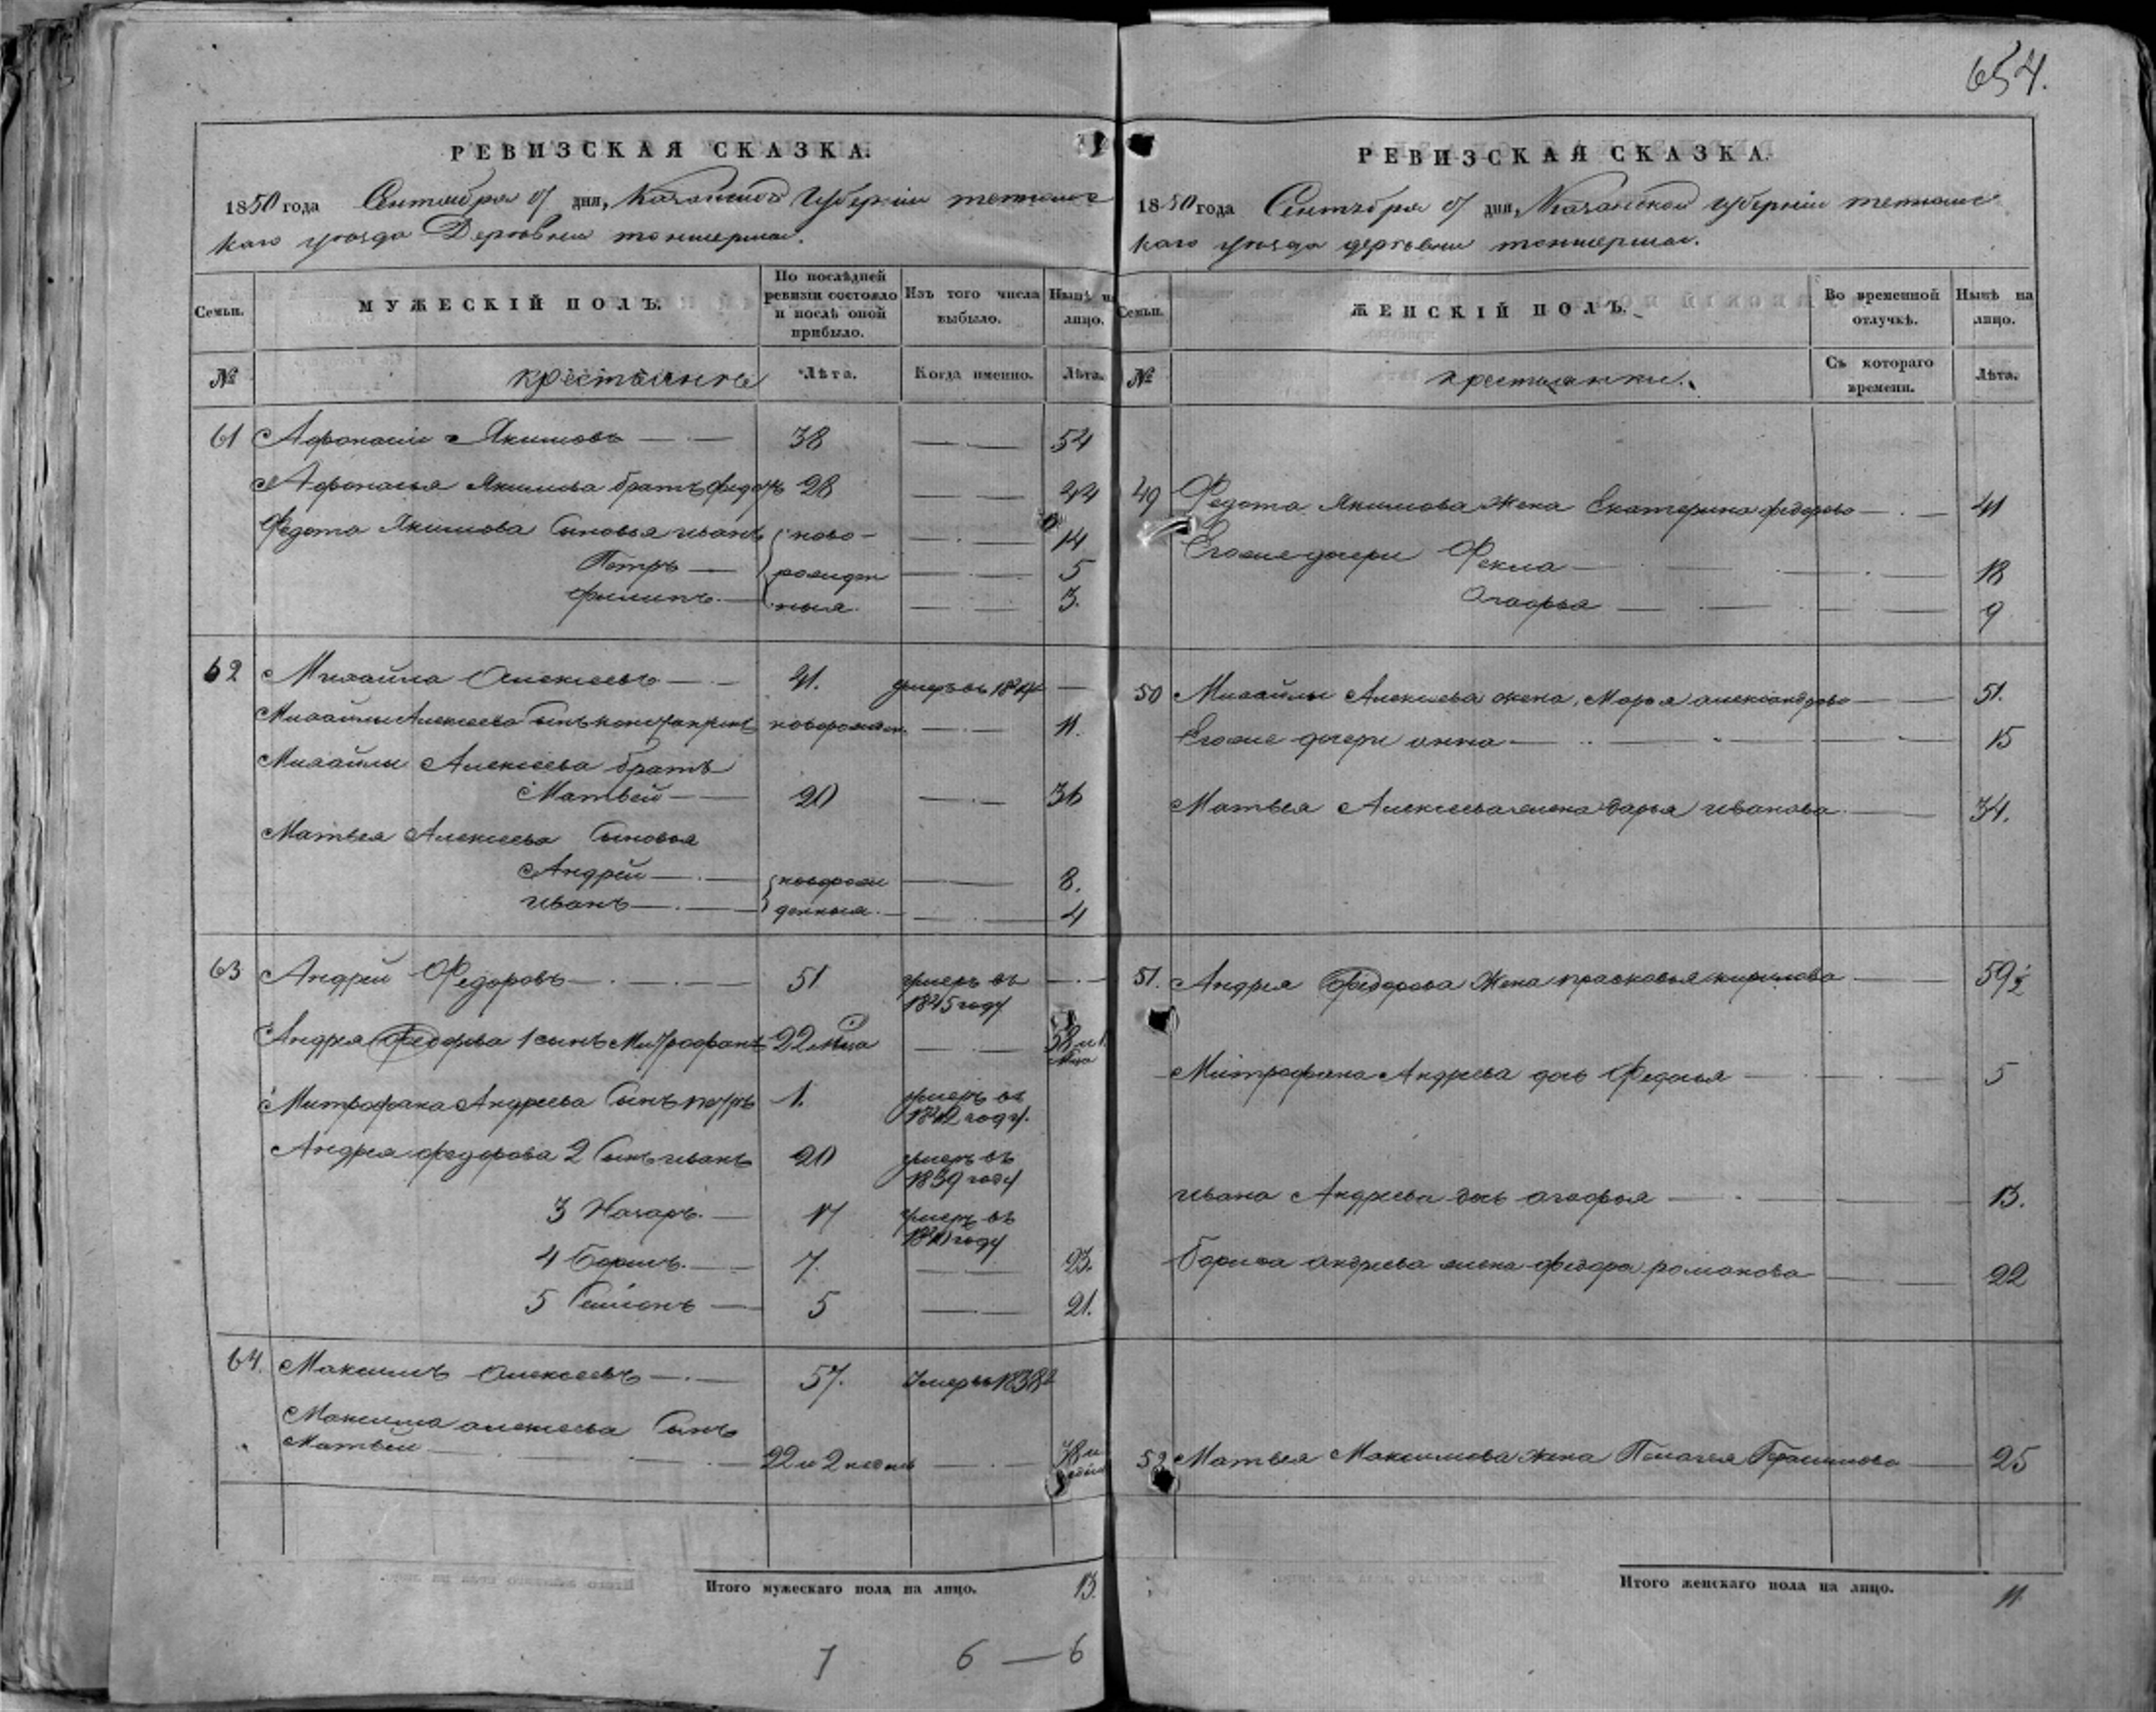 654.
РЕВИЗСКАЯ СКАЗКА.
1850 года Сентября 9 дня, Казанской Губернии тетюшс
каго уезда Деревни
Семьи.
МУЖЕСКІЙ ПОЛЪ.
По послѣдней ревизіи состояло и послѣ оной прибыло.
Изъ того числа выбыло.
Нынѣ на лицо.
№
крестьяне
Лѣта.
Когда именно.
Лѣта.
61 Афонасий Якимовъ 38 54
Афонасья Якимова братъ Федотъ 28 44
Федота Якимова Сыновья иванъ ново- 14
Петръ рожден 5
филипъ ныя 3.
62 Михайла Алексеевъ 41. умеръ въ
Михайлы Алексеева Сынъ константинъ новорожден. 11.
Михайлы Алексеева братъ
Матвей 20 36
Матвея Алексеева Сыновья
Андрей новорож 8.
иванъ денныя 4
63 Андрей Федоровъ 51 умеръ въ
1845 году
Андрея Федорова 1 сынъ Митрофанъ 22
Митрофана Андреева Сынъ петръ 1. умеръ въ
1842 году.
Андрея федорова 2 Сынъ иванъ 20 умеръ въ
1839 году
3 Назаръ. 17 умеръ въ
году
4 Борисъ. 7. 23.
5 Семионъ 5 21.
64. Максимъ Алексеевъ 57. умеръ въ 1838
Максима алексеева Сынъ
Матвей 22 и 2 недел
Итого мужескаго пола на лицо. 13.
7 6 — 6
РЕВИЗСКАЯ СКАЗКА.
1850 года Сентября 9 дня, Казанской губернии тетюшс
каго уезда деревни
Семьи.
ЖЕНСКІЙ ПОЛЪ.
Во временной отлучкѣ.
Нынѣ на лицо.
№
крестьянки.
Съ котораго времени.
Лѣта.
49 Федота Якимова Жена Екатерина федорова 41
Егоже дочери Фекла 18
Агафья 9
50 Михайлы Алексеева жена, Марья александрова 51.
Егоже дочери анна 15
Матвея Алексеева жена дарья иванова 34.
51. Андрея Федорова Жена прасковья кирилова 59 1/2
Митрофана Андреева дочь Федосья 5
ивана Андреева дочь агафья 13.
Бориса андреева жена федора романова 22
52 Матвея Максимова жена Пелагея Герасимова 25
Итого женскаго пола на лицо. 11